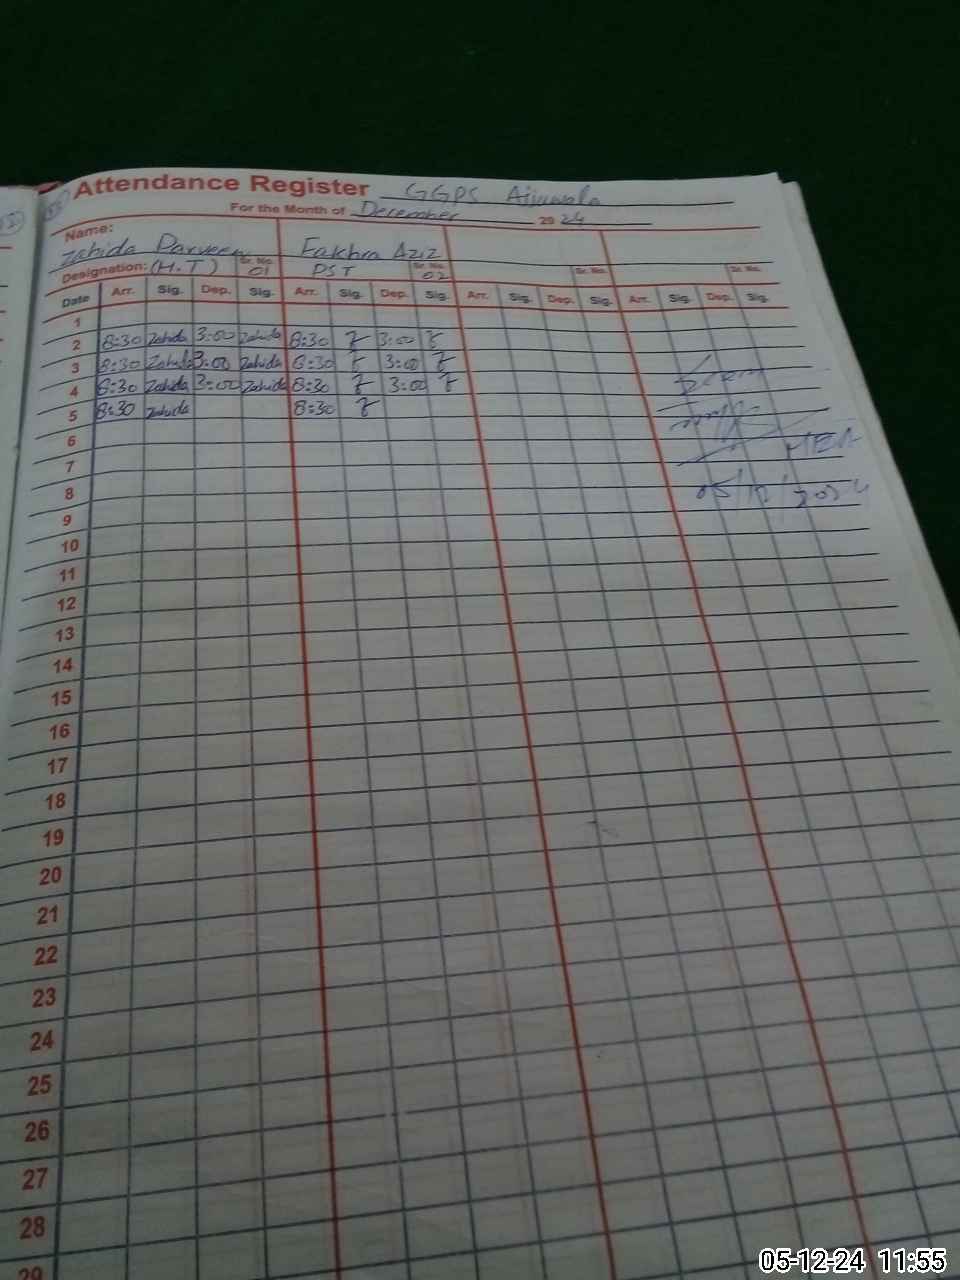 Attendance Register GGPS Aijuwala
For the Month of December 2024
Name:
Zahida Parveen Fakhra Aziz
Designation: (H.T) Sr. No. 01 PST Sr. No. 02 Sr. No. Sr. No.
Date Arr. Sig. Dep. Sig. Arr. Sig. Dep. Sig. Arr. Sig. Dep. Sig. Arr. Sig. Dep. Sig.
1
2 8:30 Zahida 3:00 Zahida 8:30 3:00
3 8:30 Zahida 3:00 Zahida 8:30 3:00
4 8:30 Zahida 3:00 Zahida 8:30 3:00
5 8:30 Zahida 8:30
6
7 MEA
8 05/12/2024
9
10
11
12
13
14
15
16
17
18
19
20
21
22
23
24
25
26
27
28
29
05-12-24 11:55